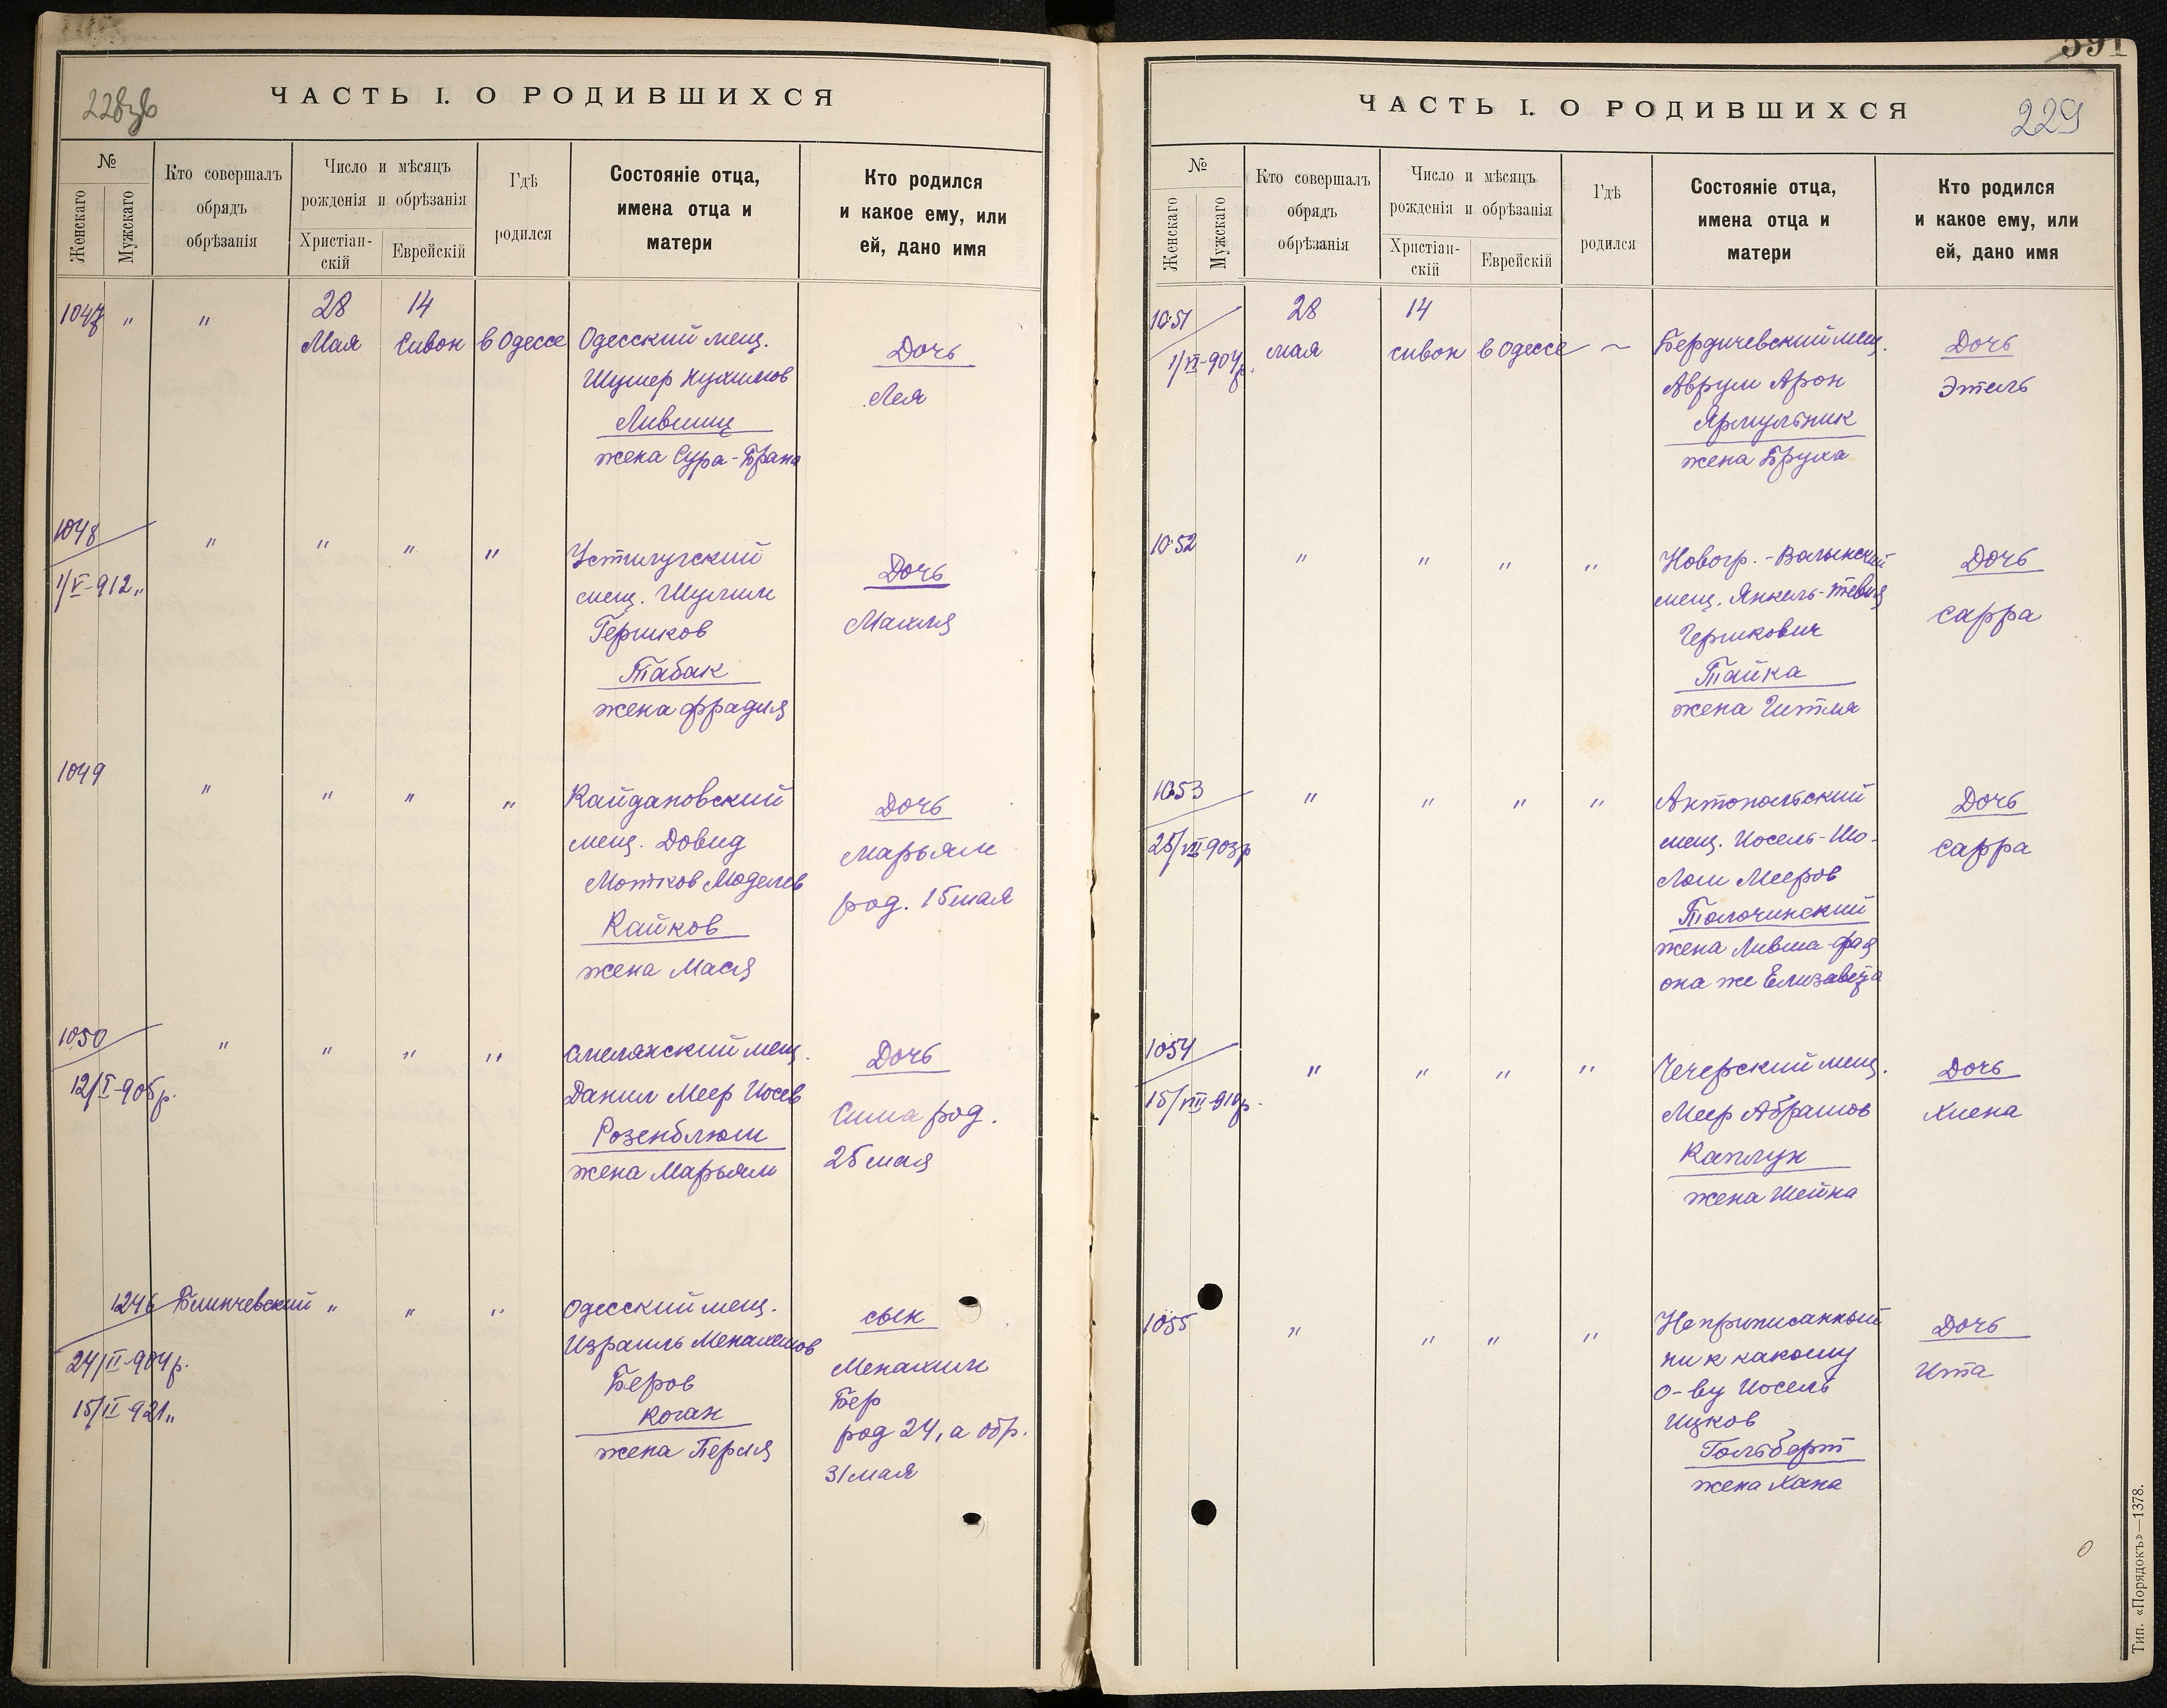 228
ЧАСТЬ I. О РОДИВШИХСЯ
№
Женскаго
Мужскаго
Кто совершалъ
обрядъ
обрѣзанія
Число и мѣсяцъ
рожденія и обрѣзанія
Христіан-
скій
Еврейскій
Гдѣ
родился
Состояніе отца,
имена отца и
матери
Кто родился
и какое ему, или
ей, дано имя
1047 " "
28 14
Мая Сивон в Одессе
Одесский мещ.
Шулер Нухимов
Лившиц
жена Сура-Брана
Дочь
Лея
1048 " " " "
1/V-912"
Устилугский
мещ. Шулим
Гершков
Табак
жена Фрадия
Дочь
Махля
1049 " " " "
Кайдановский
мещ. Довид
Мотков Моделев
Кайков
жена Мася
Дочь
Марьям
род. 15 мая
1050 " " " "
12/I-905г.
Смелянский мещ.
Данил Меер Иосев
Розенблюм
жена Марьям
Дочь
Сима род.
25 мая
1246 Блинчевский " " "
24/II-904г.
15/II-921"
Одесский мещ.
Израиль Менахемов
Беров
Коган
жена Перля
сын
Менахим
Бер
род 24, а обр.
31 мая
391
ЧАСТЬ I. О РОДИВШИХСЯ
229
№
Женскаго
Мужскаго
Кто совершалъ
обрядъ
обрѣзанія
Число и мѣсяцъ
рожденія и обрѣзанія
Христіан-
скій
Еврейскій
Гдѣ
родился
Состояніе отца,
имена отца и
матери
Кто родился
и какое ему, или
ей, дано имя
1051
1/VI-904г.
28 14
мая сивон в Одессе
Бердичевский мещ.
Аврум Арон
Ярмульник
жена Бруха
Дочь
Этель
1052 " " " "
Новогр.-Волынский
мещ. Янкель-Тевия
Гершкович
Тайка
жена Гитля
Дочь
Сарра
1053 " " " "
25/VII-903г
Антопольский
мещ. Иосель-Шо-
лом Мееров
Толочинский
жена Ливша-Фая
она же Елизавета
Дочь
Сарра
1054 " " " "
15/VIII-910г.
Чечерский мещ.
Меер Абрамов
Каплун
жена Шейна
Дочь
Хиена
1055 " " " "
Неприписанный
ни к какому
о-ву Иосель
Ицков
Гольбарт
жена Хана
Дочь
Ита
Тип. «Порядокъ»—1378.